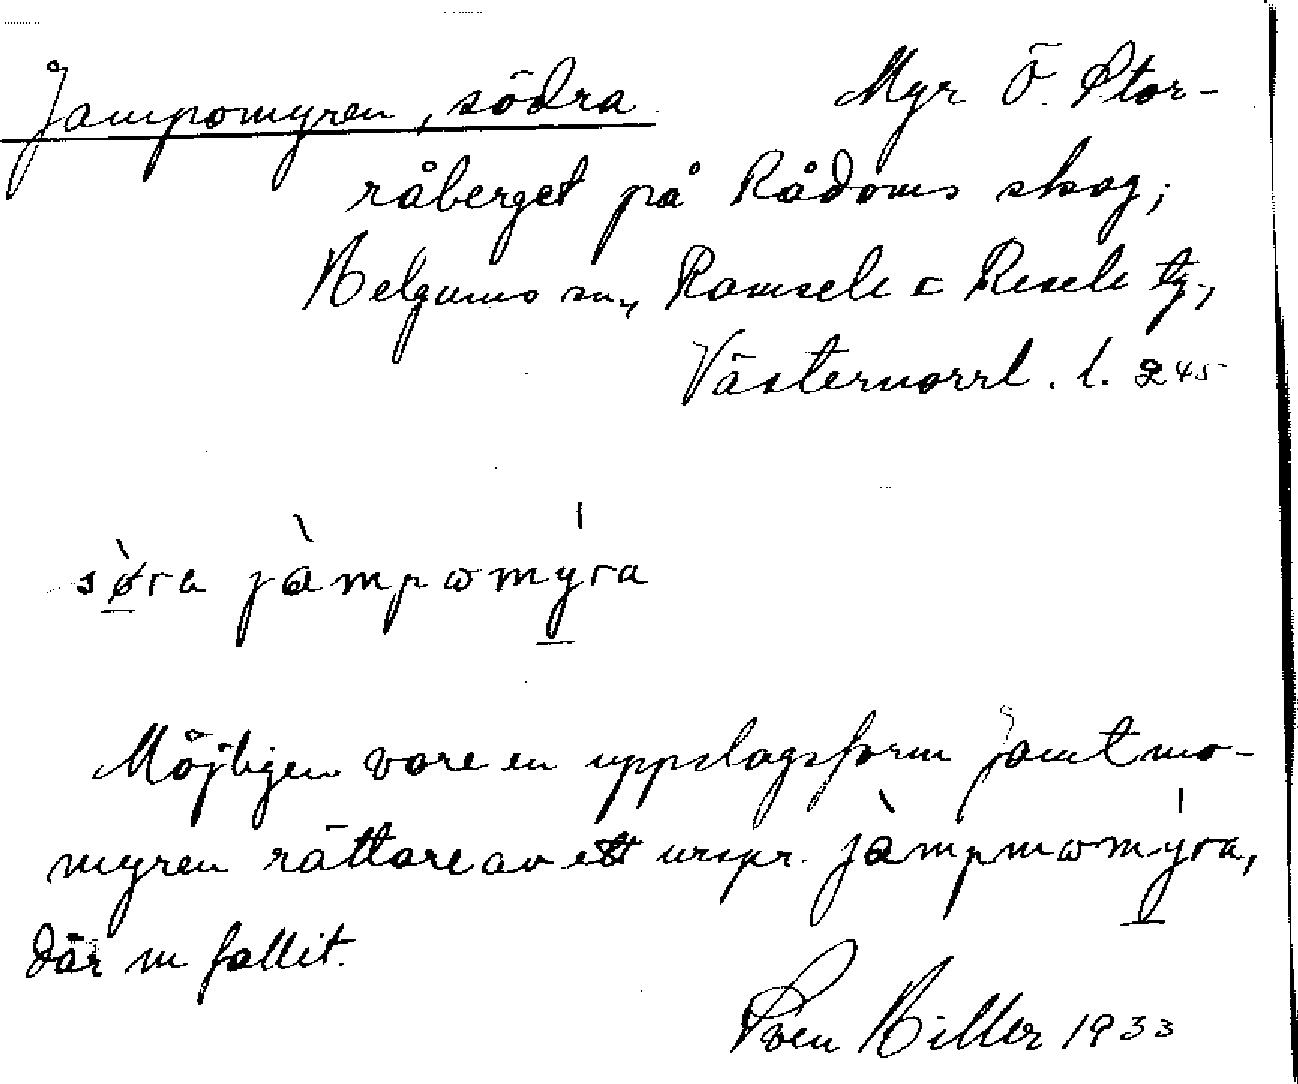 Jampomyren, södra Myr Ö. Stor-
råberget på Rådoms skog;
Helgums sn, Ramsele o Resele tg,
Västernorrl. l. 245
søra jàmpωmýra
Möjligen vore en uppslagsform Jamtmo-
myren rättare av ett urspr. jàmpmωmýra,
där m fallit.
Sven Hiller 1933